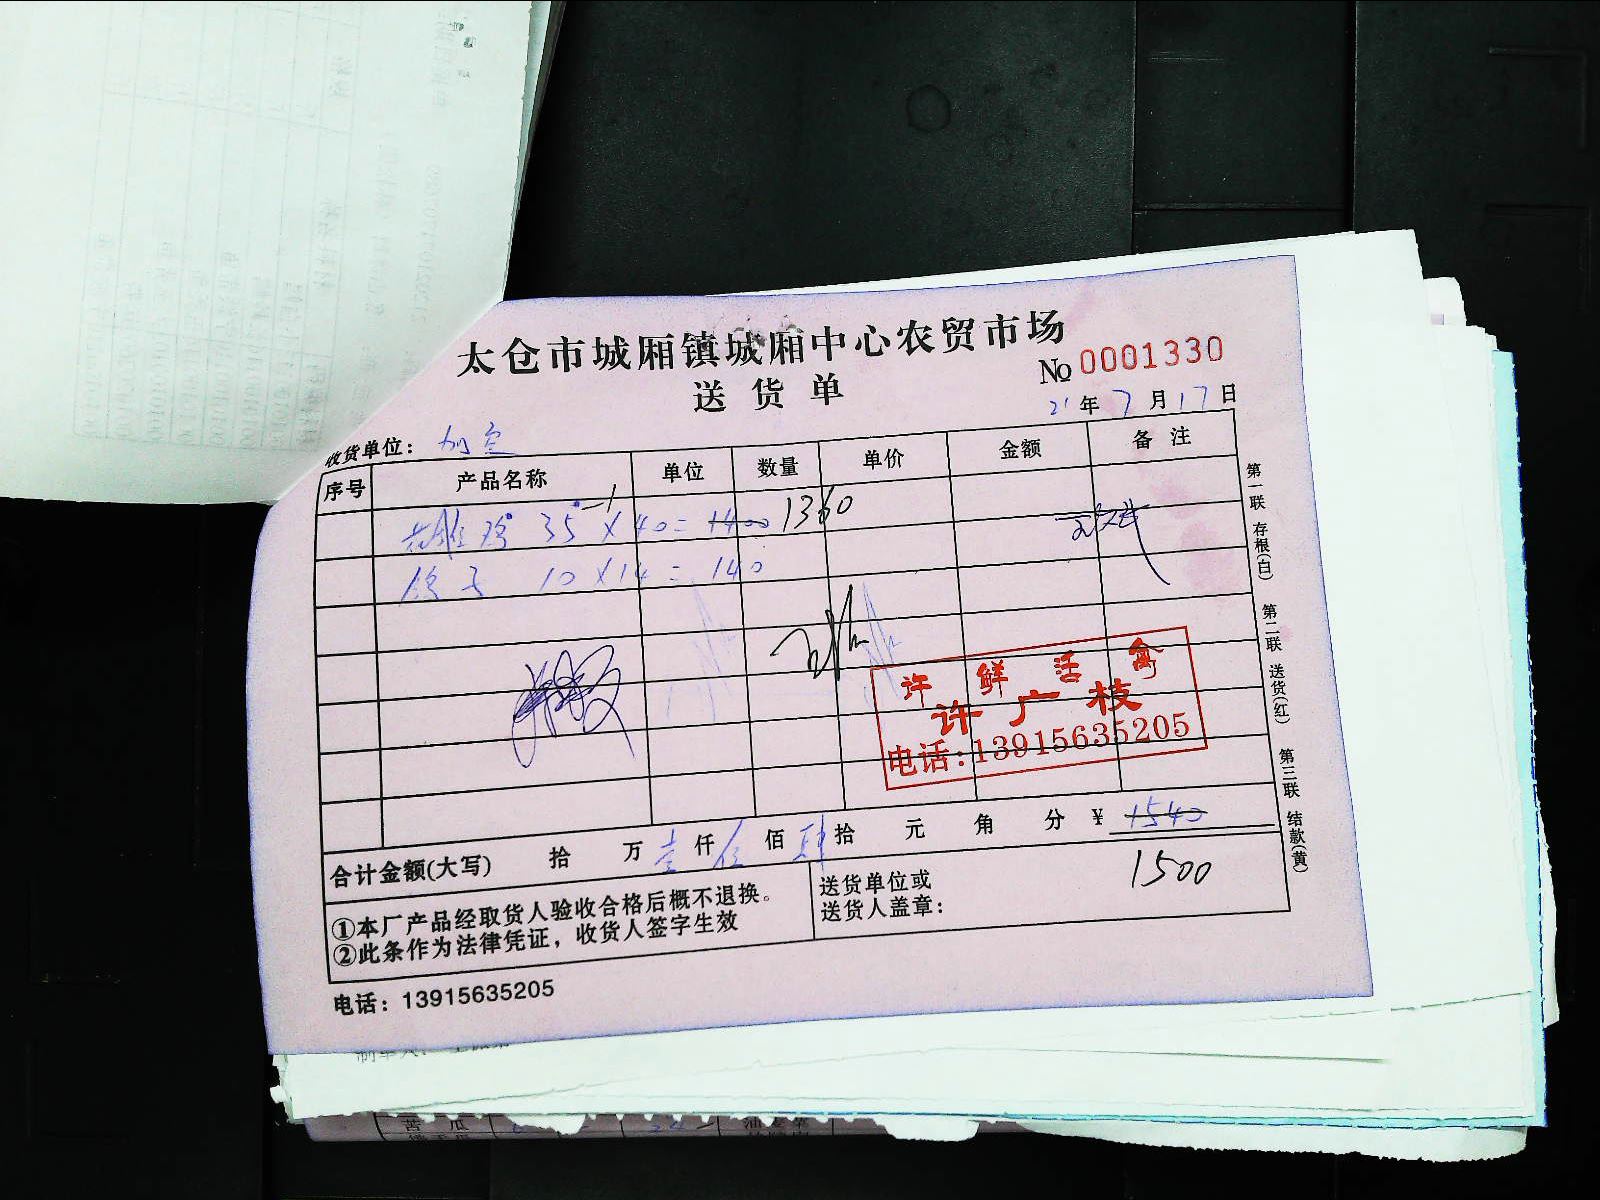 太仓市城厢镇城厢中心农贸市场
送货单
№ 0001330
21年7月17日
收货单位：
序号 产品名称 单位 数量 单价 金额 备注
雄鸡 35-1×40=1400 1360
10×14=140
许鲜活禽
许广枝
电话:13915635205
合计金额(大写) 拾 万 壹 仟 伍 佰 肆 拾 元 角 分 ¥ 1540
1500
①本厂产品经取货人验收合格后概不退换。
②此条作为法律凭证，收货人签字生效
送货单位或
送货人盖章：
电话：13915635205
第一联 存根(白) 第二联 送货(红) 第三联 结款(黄)
苦瓜